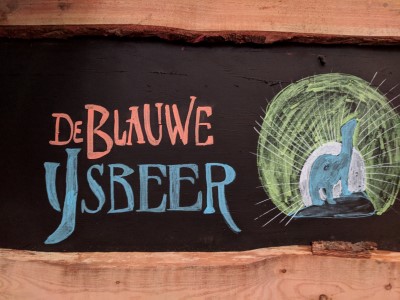 De BLAUWE
IJSBEER